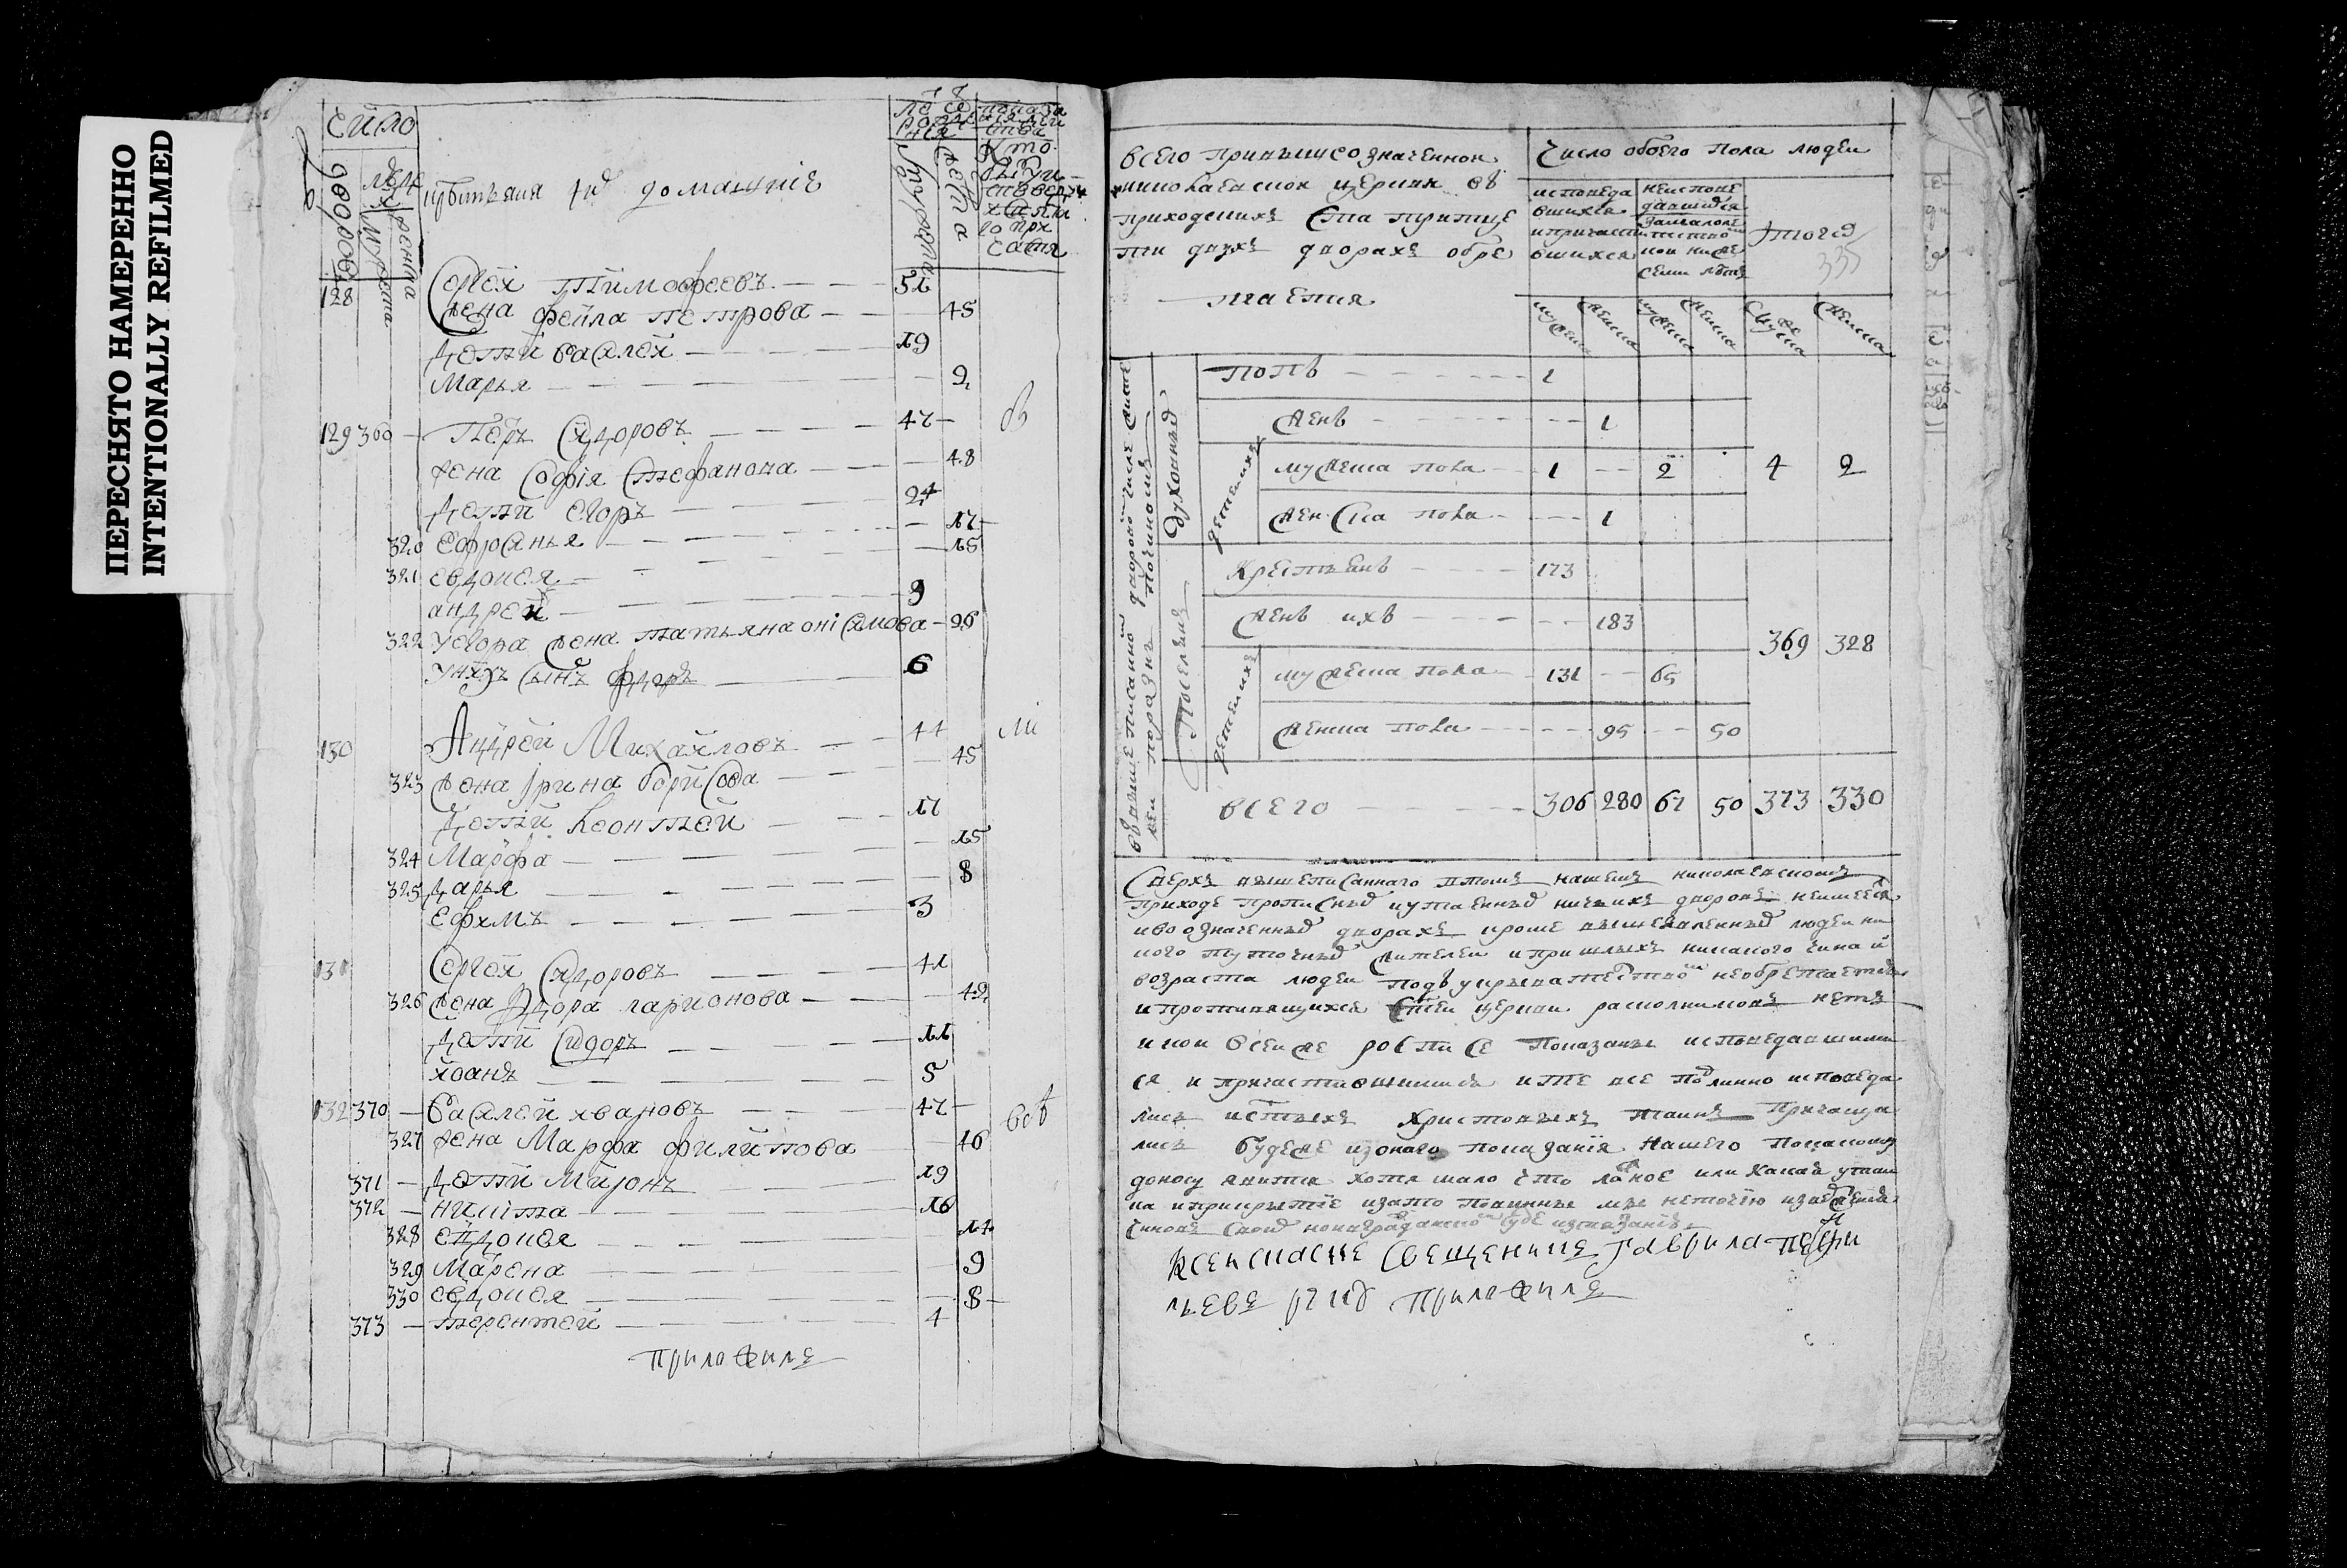 ПЕРЕСНЯТО НАМЕРЕННО
INTENTIONALLY REFILMED
число
дворовъ
людей
мужеска
женска
крестьяня и их домашние
мужеска
женска
Кто
128 Сергей Тимофеевъ 51
жена Фекла Петрова 45
дети Василей 19
Марья 9
129 360 Петръ Сидоровъ 47
жена Софія Стефанова 48
дети Егоръ 24
320 Ефросинья 17
321 Евдокея 15
андрей 9
322 у Егора жена татьяна онісимова 26
у них сынъ Федоръ 6
130 Андрей Михайловъ 44
323 жена Ірина борисова 45
дети Леонтей 17
324 Марфа 15
325 Дарья 8
Ефимъ 3
131 Сергей Сидоровъ 41
326 жена Федора ларионова 42
дети Сидоръ 11
Иоанъ 5
132 370 Василей ивановъ 47
327 жена Марфа филипова 46
371 дети Миронъ 19
372 никита 16
328 евдокея 14
329 Марена 9
330 евдокея 8
373 терентей 4
приложилъ
всего при вышеозначеннои
николаевскои церкви въ
приходских ста тритце
ти двухъ дворахъ обре
таетца
Число обоего пола людеи
исповеда
вшихся
и причасти
вшихся
неисповедавшихся
семи летъ
итого
335
мужеска женска мужеска женска мужеска женска
духовных
попъ 1
женъ 1
детеи их
мужеска пола 1 2 4 2
женска пола 1
Поселян
Крестьянъ 173
женъ ихъ 183
369 328
детеи ихъ
мужеска пола 131 65
женска пола 95 50
всего 306 280 67 50 373 330
Сверхъ вышеписанного в томъ нашемъ николаевскомъ
приходе прописных и утаенных ничьихъ дворовъ неимеетца
и во означенных дворахъ кроме вышеявленных людеи ни
кого тутошных жителеи и пришлыхъ никакого чина и
возраста людеи подъ укрывательствомъ необретаетца
и противящихся стеи церкви расколниковъ нетъ
и кои в сеи же росписе показаны исповедавшими
ся и причастившимися и те все подлинно исповеда
лись и стыхъ христовыхъ таинъ причаща
лись буде же из оного показанія нашего по какому
доносу явится хотя мало что ложное или какая утаи
ка и прикрытіе и за то повинны мы неточию извержения
чиновъ своих но и гражданскому суде истязанию
К сеи сказке священникъ Гаврила
руку приложилъ